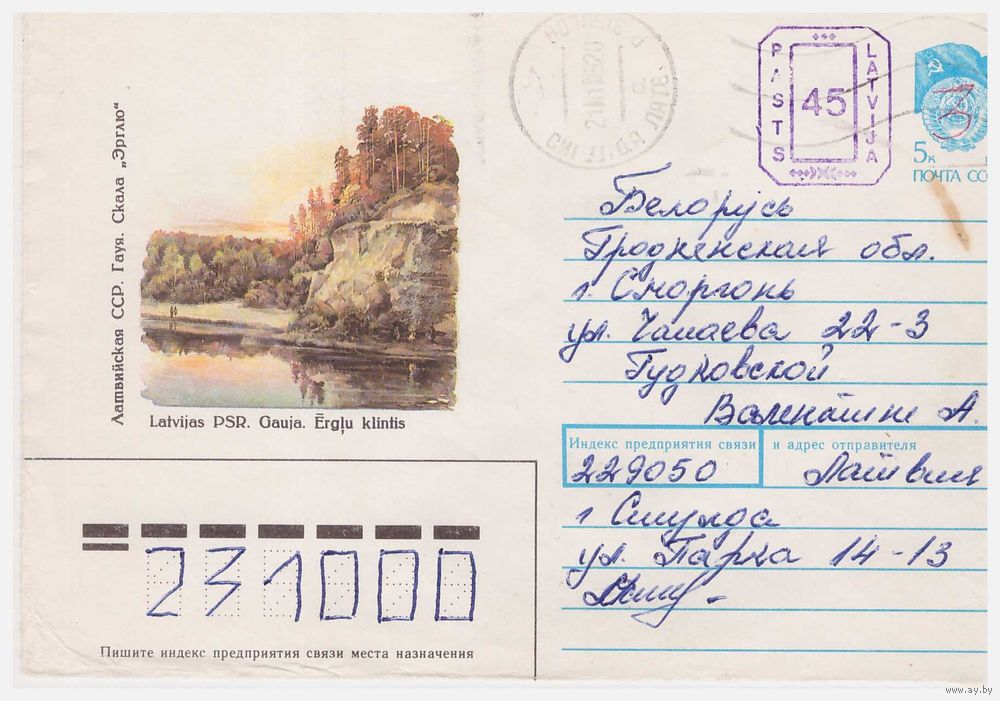 Латвийская ССР. Гауя. Скала „Эрглю“
Latvijas PSR. Gauja. Ērgļu klintis
PASTS
45
LATVIJA
5к
ПОЧТА СС
Белорусь
Гродненская обл.
г. Сморгонь
ул. Чапаева 22-3
Гудковской
А.
Индекс предприятия связи
и адрес отправителя
229050
Латвия
г Сигулда
ул. Парка 14-13
231000
Пишите индекс предприятия связи места назначения
www.ay.by